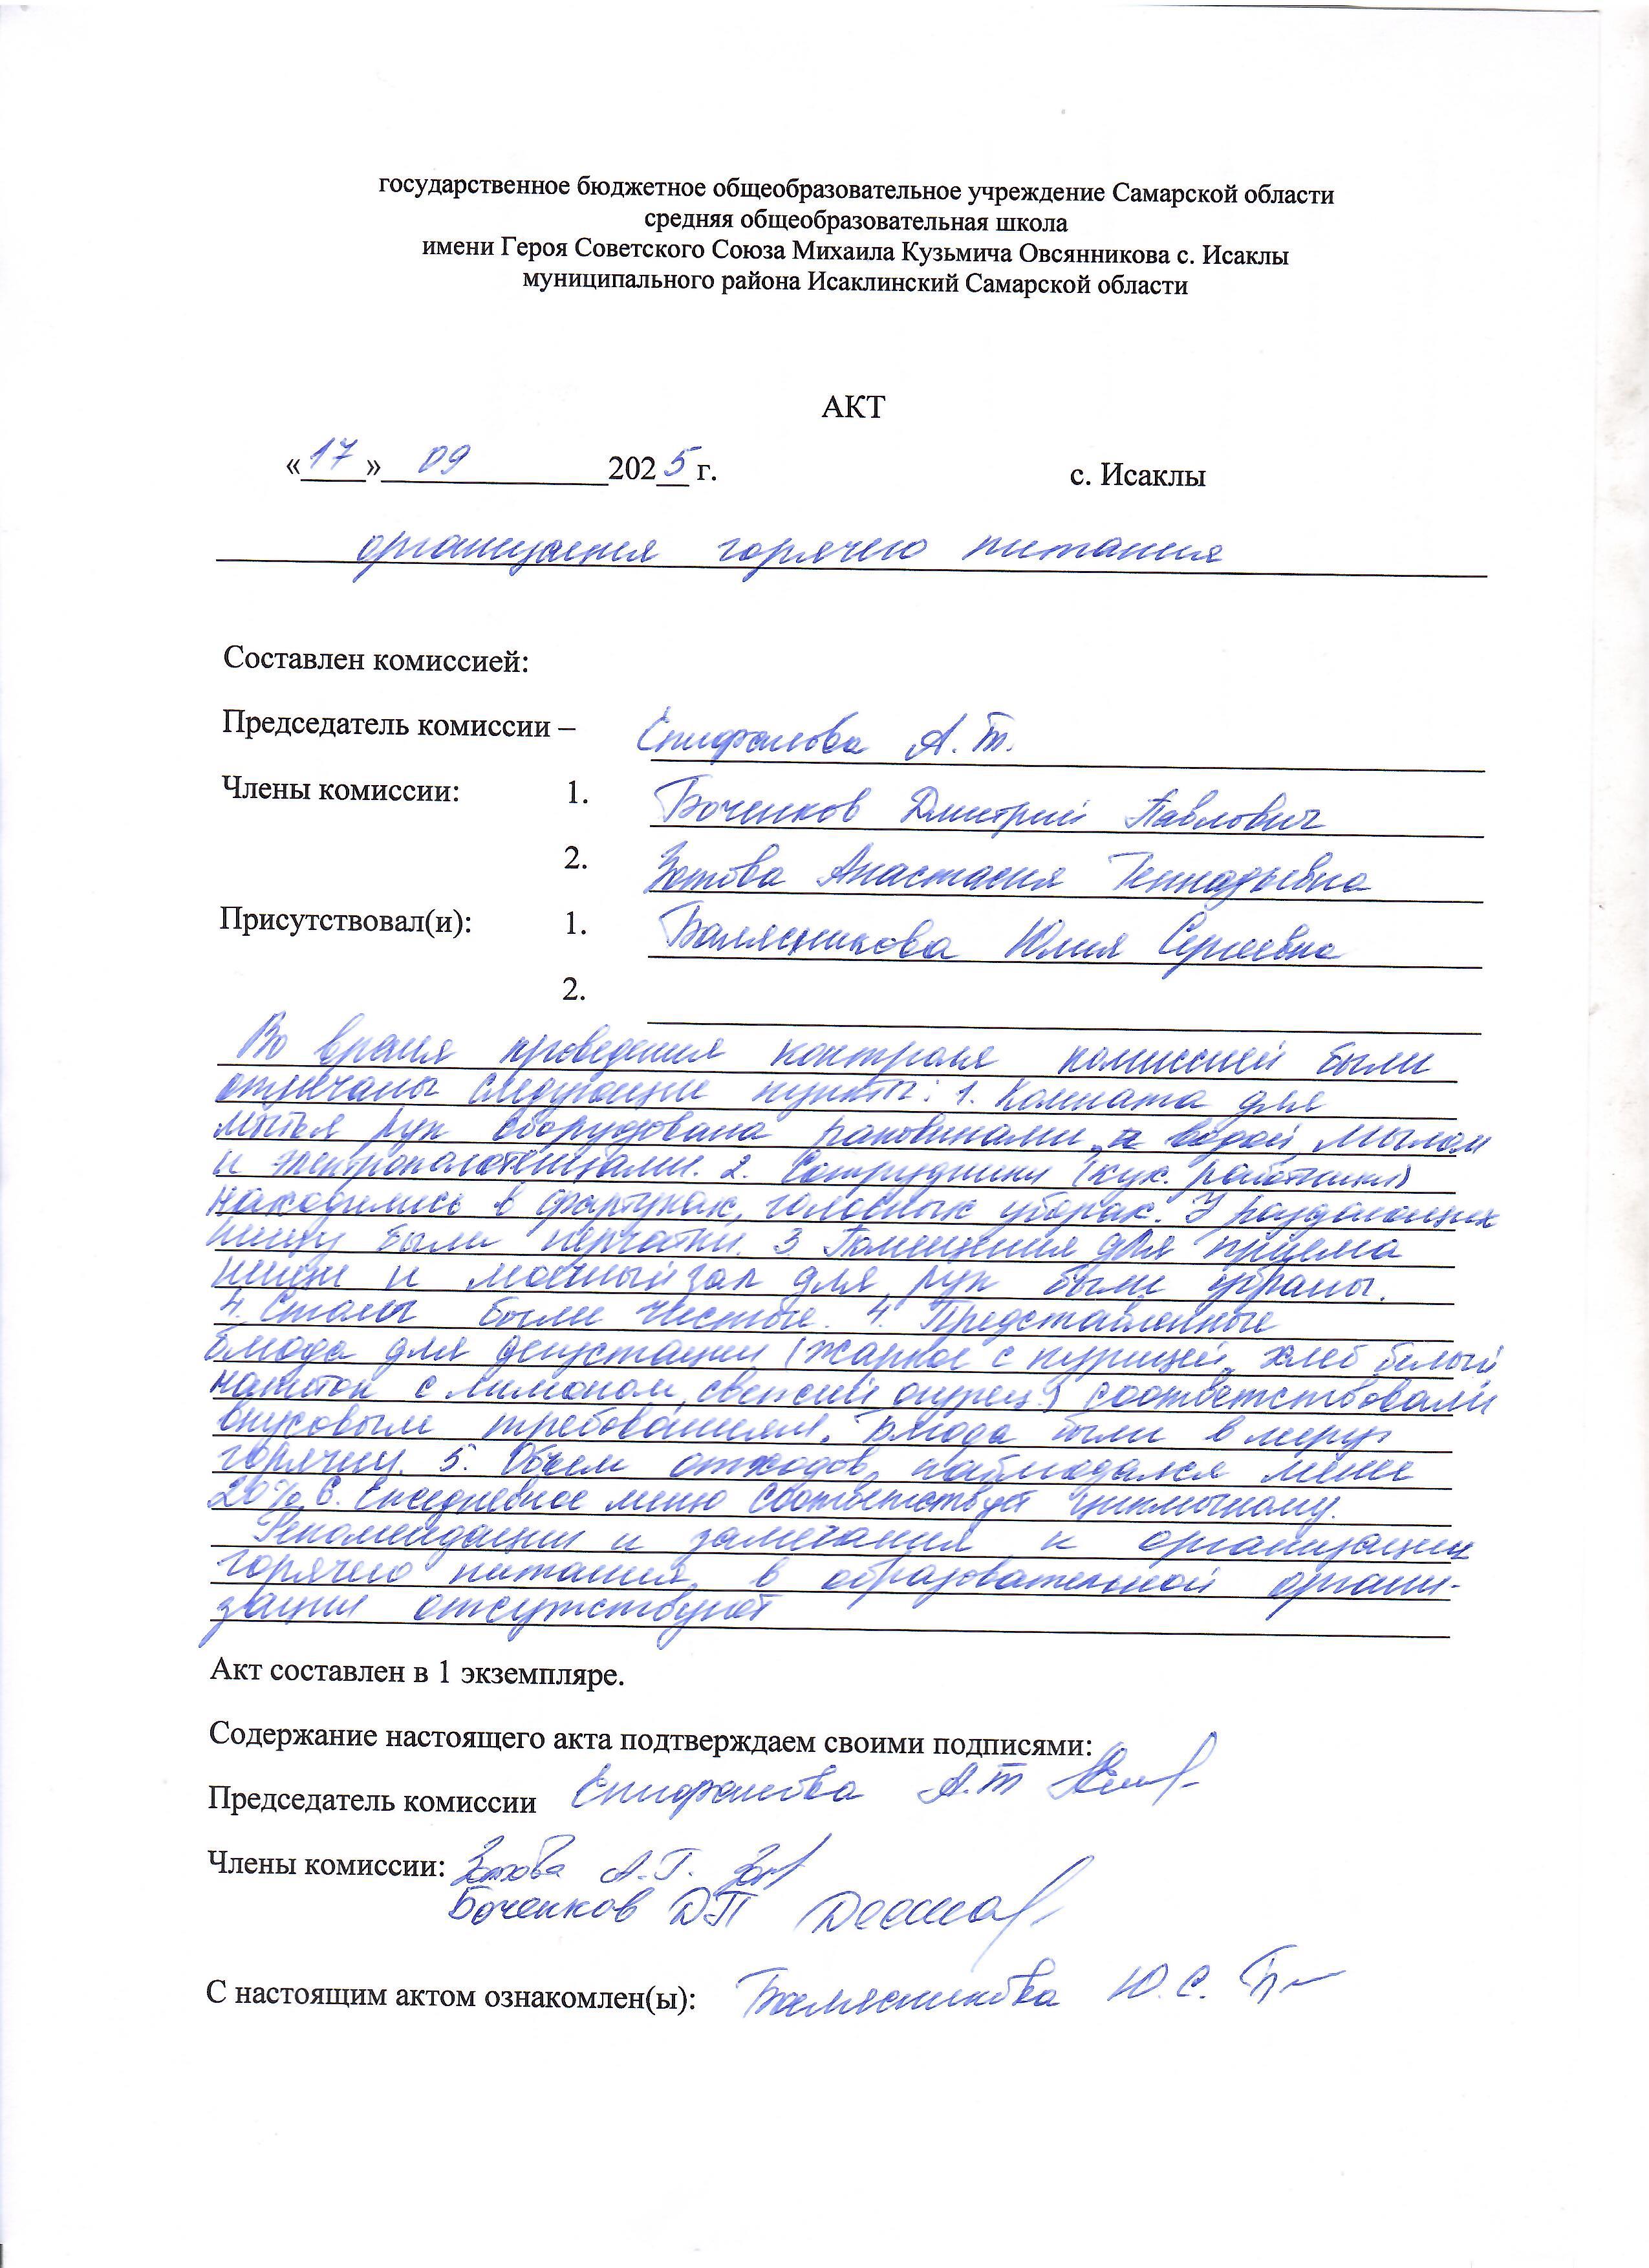 государственное бюджетное общеобразовательное учреждение Самарской области
средняя общеобразовательная школа
имени Героя Советского Союза Михаила Кузьмича Овсянникова с. Исаклы
муниципального района Исаклинский Самарской области
АКТ
«17» 09 2025 г. с. Исаклы
организация горячего питания
Составлен комиссией:
Председатель комиссии – Епифанова А.Т.
Члены комиссии: 1. Боченков Дмитрий Павлович
2. Зотова Анастасия Геннадьевна
Присутствовал(и): 1. Балясникова Юлия Сергеевна
2.
Во время проведения контроля комиссией были
отмечаны следующие пункты: 1. Комната для
мытья рук оборудована раковинами, водой, мылом
и электрополотенцами. 2. Сотрудники (кух. работники)
находились в фартуках, головных уборах. У раздающих
пищу были перчатки. 3. Помещения для приема
пищи и моечный зал для рук были убраны.
4. Столы были чистые. 4. Представленные
блюда для дегустации (жаркое с курицей, хлеб белый,
напиток с лимоном, свежий огурец) соответствовали
вкусовым требованиям. Блюда были в меру
горячии. 5. Объем отходов наблюдался менее
20% 6. Ежедневное меню соответствует цикличному.
Рекомендации и замечания к организации
горячего питания в образовательной органи-
зации отсутствуют
Акт составлен в 1 экземпляре.
Содержание настоящего акта подтверждаем своими подписями:
Председатель комиссии Епифанова А.Т
Члены комиссии: Зотова А.Г. Зот
Боченков ДП
С настоящим актом ознакомлен(ы): Балясникова Ю.С.